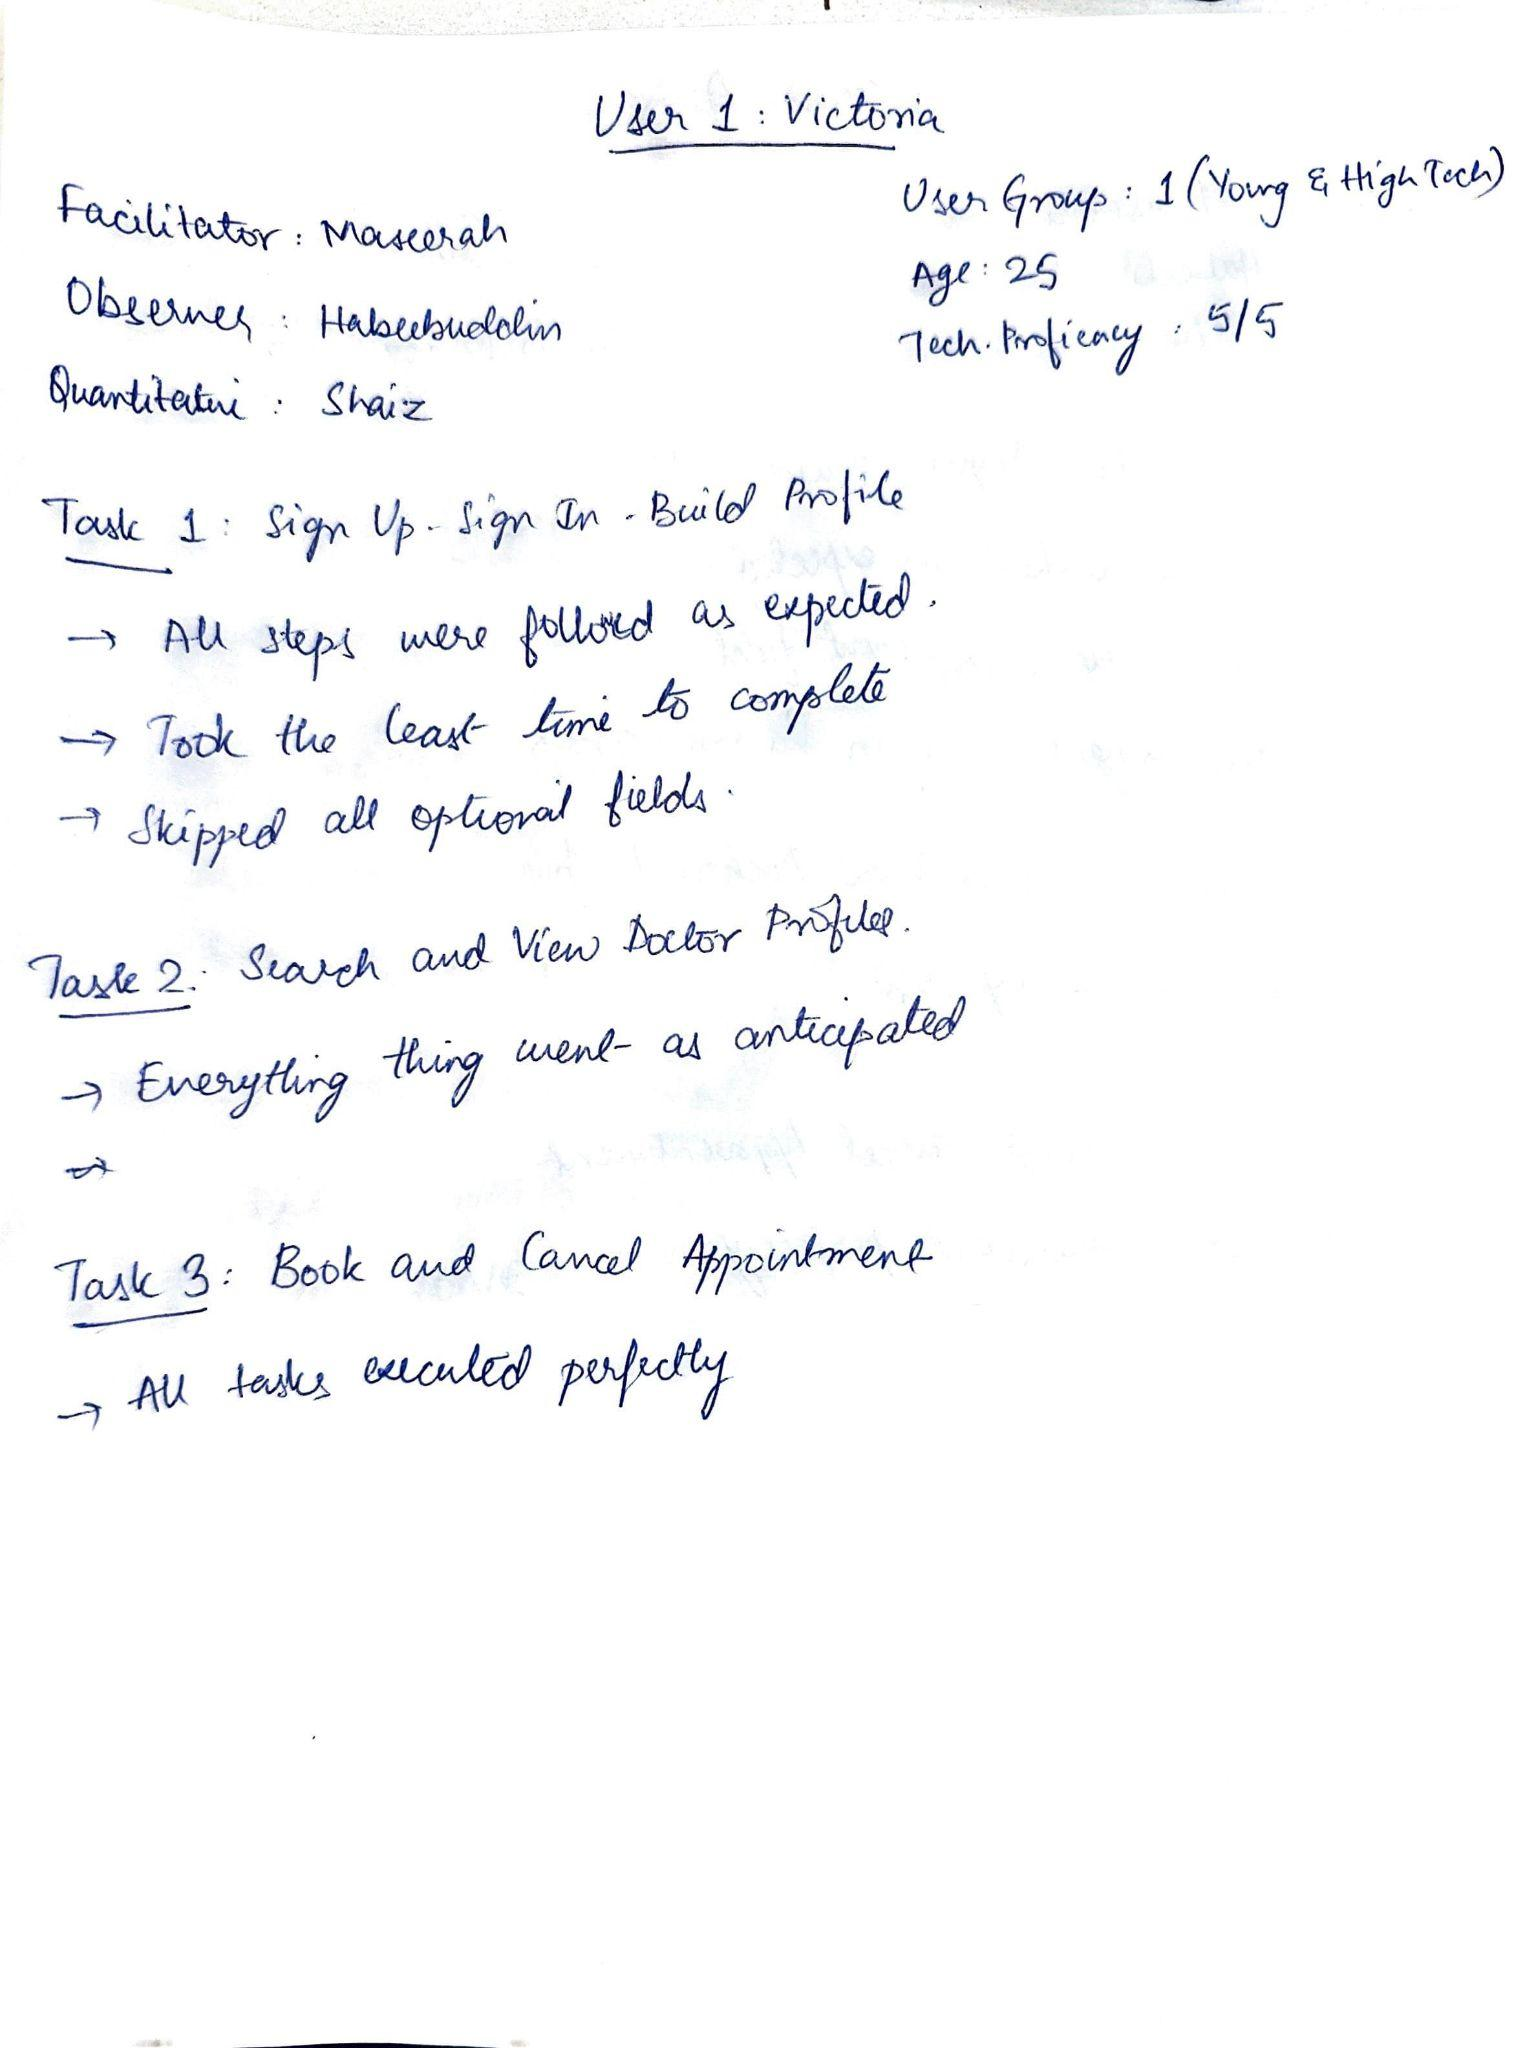 User 1 : Victoria
Facilitator : Maseerah
User Group : 1 (Young & High Tech)
Observer : Habeebuddin
Age : 25
Quantitative : Shaiz
Tech. Proficency : 5/5
Task 1 : Sign Up - Sign In - Build Profile
→ All steps were follow​ed as expected.
→ Took the least time to complete
→ Skipped all optional fields.
Task 2 : Search and View Doctor Profiles.
→ Everything thing went as anticipated
→
Task 3 : Book and Cancel Appointment
→ All tasks executed perfectly